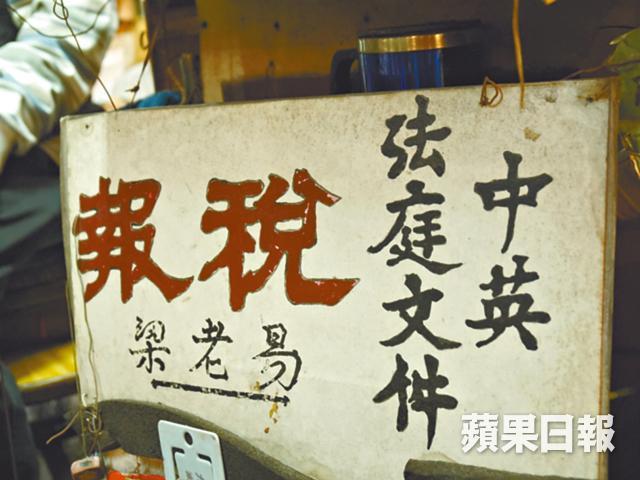 中英
法庭文件
報税
梁老易
蘋果日報